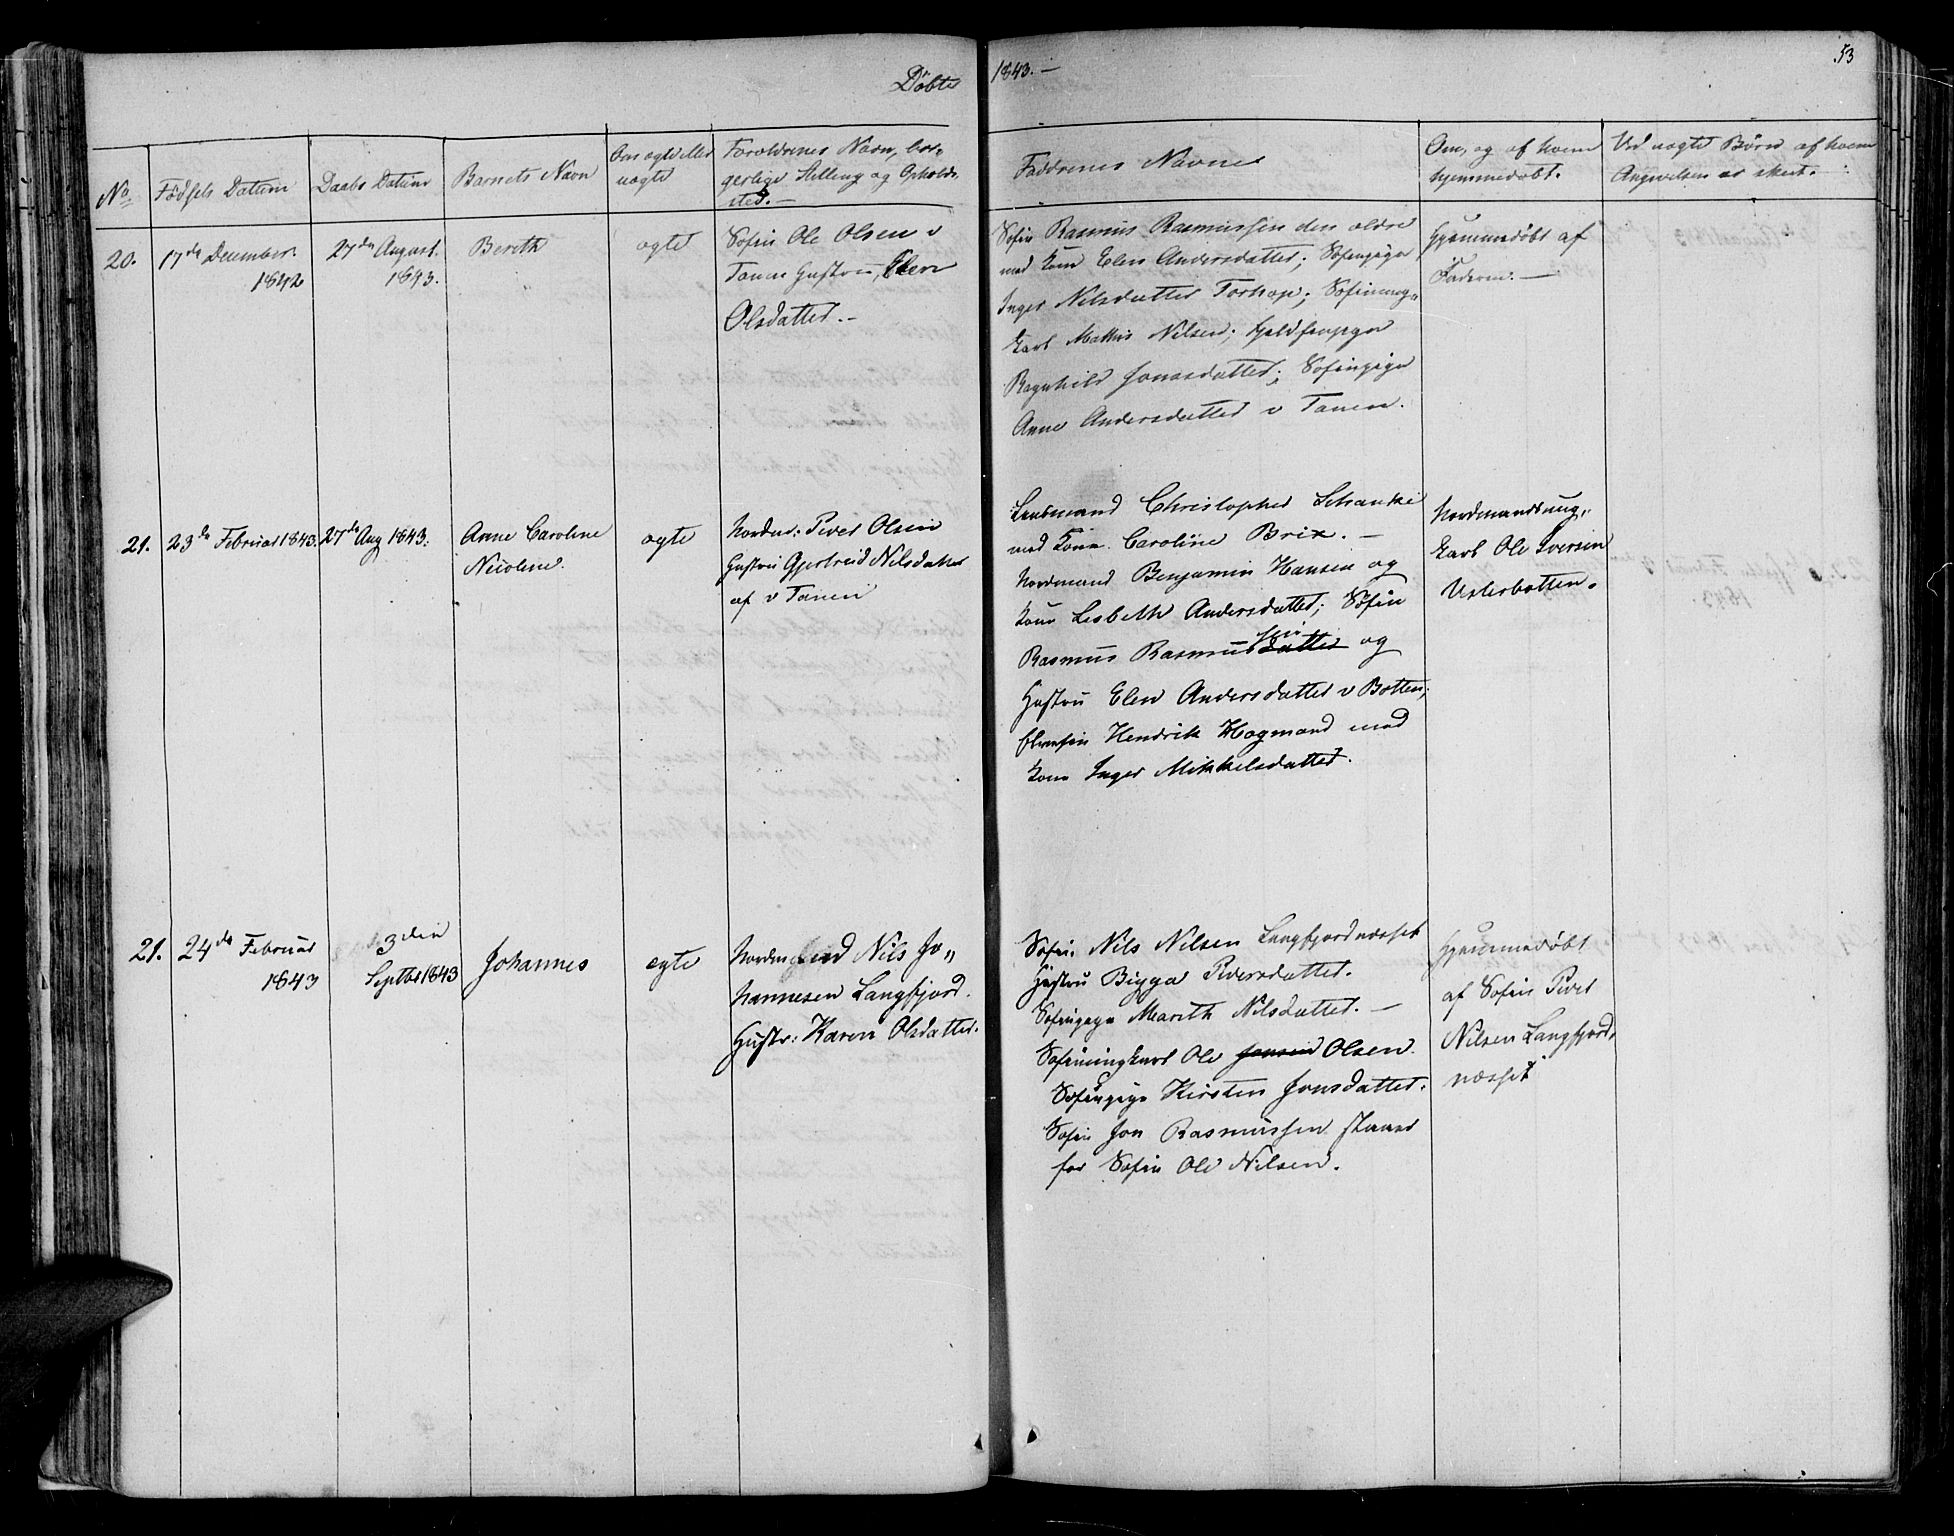 Døbte
1843. —
53
No
Fødsels Datum
Daabs Datum
Barnets Navn
Om ægte eller
uægte
Forældrenes Navn, bor-
gerlige Stilling og Opholds
sted. —
Faddernes Navne
Om, og af hvem
hjemmedøbt.
Ved uægte Børn af hvem
Angivelsen er skeet. —
20.
17de December
1842
27de August
1843.
Bereth
ægte
Søfin Ole Olsen v
Tanen Hustru, Elen
Olsdatter. —
Søfin Rasmus Rasmussen den ældre
med Kone Elen Andersdatter; Søfinpige
Inger Nilsdatter Torhop; Søfinung-
karl Mathis Nilsen; Fjeldfinpige
Ragnhild Jonasdatter; Søfinpige
Anne Andersdatter v Tanen.
Hjemmedøbt af
Faderen. —
21.
23de Februar 1843.
27de Aug 1843.
Anne Caroline
Nicoline.
ægte
Nordm: Peder Olsen
Hustru Gjertrud Nilsdatter
af v Tanen
Lensmand Christopher Schanke
med Kone Caroline Brix. —
Nordmand Benjamin Hansen og
Kone Lisbeth Andersdatter; Søfin
Rasmus Rasmusdatter sen og
Hustru Elen Andersdatter v Botten;
Elvefin Hendrik Hagmand med
Kone Inger Mikkelsdatter.
Nordmandsung-
karl Ole Iversen
Vesterbotten.
21.
24de Februar
1843
3den
Septbr 1843
Johannes
ægte
Nordmand Nils Jo-
hannesen Langfjord.
Hustr: Karen Olsdatter.
Søfin. Nils Nilsen Langfjordnæsset
Hustru Bigga Pedersdatter.
Søfinpige Mareth Nilsdatter. —
Søfinungkarl Ole Jonsen Olsen.
Søfinpige Kirsten Jonsdatter.
Søfin Jon Rasmussen staaer
for Søfin Ole Nilsen.
Hjemmedøbt
af Søfin Peder
Nilsen Langfjord-
næsset